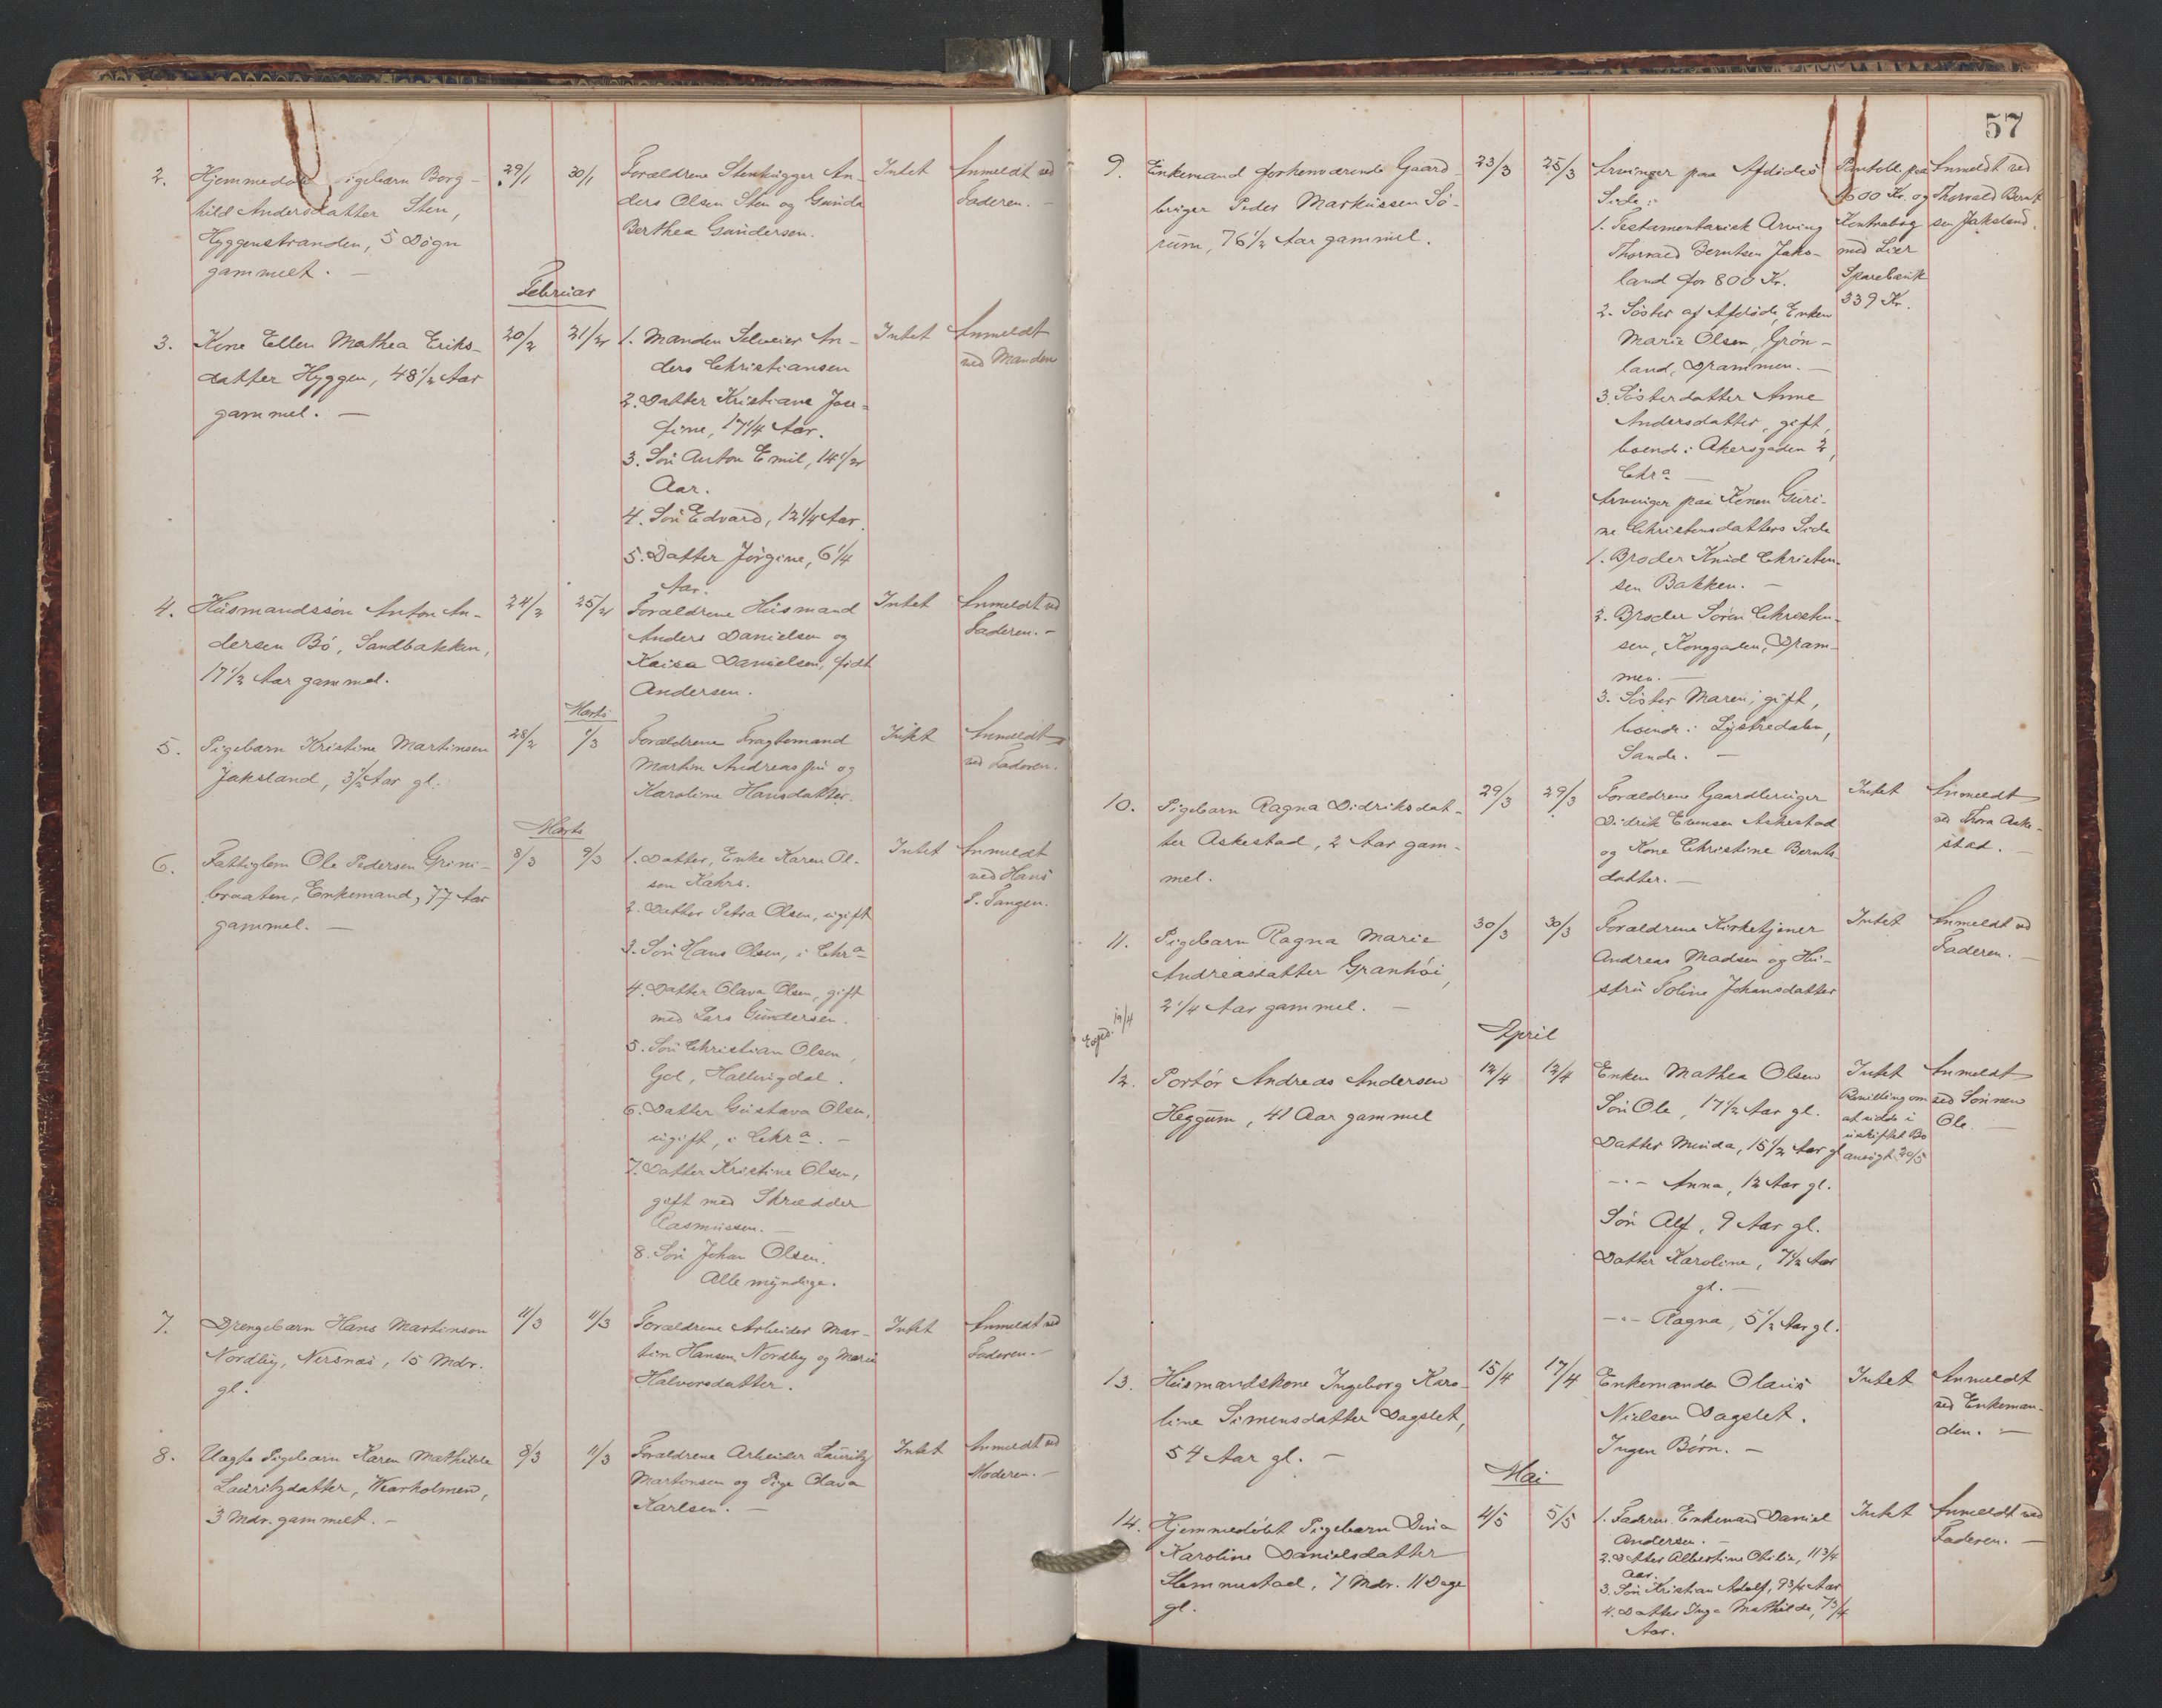 2.
Hjemmedöbt Pigebarn Borg-
hild Andersdatter Sten,
Hyggenstranden, 5 Dögn
gammelt. —
29/1
30/1
Forældrene Stenhugger An-
ders Olsen Sten og Gunda
Berthea Gundersen.
Intet
Anmeldt ved
Faderen. —
Februar
3.
Kone Ellen Mathea Eriks-
datter Hyggen, 48 1/2 Aar
gammel. —
20/2
21/2
1. Manden Selveier An-
ders Christiansen
2. Datter Kristiane Jose-
fine, 17 1/4 Aar.
3. Sön Anton Emil, 14 1/2
Aar.
4. Sön Edvard, 12 1/4 Aar.
5. Datter Jörgine, 6 1/4
Aar.
Intet
Anmeldt
ved Manden
4.
Husmandssön Anton An-
dersen Bö, Sandbakken,
17 1/2 Aar gammel.
24/2
25/2
Forældrene Husmand
Anders Danielsen og
Kaisa Danielsen, födt
Andersen.
Intet
Anmeldt ved
Faderen. —
Marts
5.
Pigebarn Kristine Martinsen
Jaksland, 3 1/2 Aar gl.
28/2
1/3
Forældrene Fragtemand
Martin Andreassen og
Karoline Hansdatter.
Intet
Anmeldt
ved Faderen.
Marts
6.
Fattiglem Ole Pedersen Grini-
braaten, Enkemand, 77 Aar
gammel. —
8/3
9/3
1. Datter, Enke Karen Ol-
sen Kahrs.
2. Datter Petra Olsen, ugift
3. Sön Hans Olsen, i Chr.a
4. Datter Olava Olsen, gift
med Lars Gundersen.
5. Sön Christian Olsen,
Gol, Hallingdal.
6. Datter Gustava Olsen,
ugift, i Chr.a. —
7. Datter Kristine Olsen,
gift med Skrædder
Rasmussen. —
8. Sön Johan Olsen.
Alle myndige.
Intet
Anmeldt
ved Hans
P. Tangen.
7.
Drengebarn Hans Martinson
Nordby, Nersnæs, 15 Mdr.
gl.
11/3
11/3
Forældrene Arbeider Mar-
tin Hansen Nordby og Marie
Halvorsdatter.
Intet
Anmeldt ved
Faderen. —
8.
Uægte Pigebarn Karen Mathilde
Lauritzdatter, Wearholmen,
3 Mdr. gammelt. —
8/3
11/3
Forældrene Arbeider Lauritz
Martinsen og Pige Olava
Karlsen. —
Intet
Anmeldt ved
Moderen. —
57
9.
Enkemand forhenværende Gaard-
bruger Peder Markussen Sö-
rum, 76 1/2 Aar gammel.
23/3
25/3
Arvinger paa Afdödes
Side:
1. Testamentarisk Arving
Thorvald Berntsen Jaks-
land for 800 Kr.
2. Söster af Afdöde, Enken
Marie Olsen, Grön-
land, Drammen. —
3. Sösterdatter Anne
Andersdatter, gift,
boende i Akersgaden 2,
Chr.a —
Arvinger paa Konen Guri-
ne Christensdatters Side
1. Broder Knud Christen-
sen Bakken. —
2. Broder Sören Christen-
sen, Konggaden, Dram-
men. —
3. Söster Maren, gift,
boende i Lystredalen,
Sande. —
Pantobl. paa
1600 Kr. og
Kontrabog
med Lier
Sparebank
339 Kr.
Anmeldt ved
Thorvald Bernt-
sen Jaksland.
10.
Pigebarn Ragna Didriksdat-
ter Askestad, 2 Aar gam-
mel.
29/3
29/3
Forældrene Gaardbruger
Didrik Evensen Askestad
og Kone Christine Bernts-
datter. —
Intet
Anmeldt
ved Thora Aske-
stad. —
11.
Pigebarn Ragna Marie
Andreasdatter Granhöi,
2 1/4 Aar gammel. —
30/3
30/3
Forældrene Kirketjener
Andreas Madsen og Hu-
stru Toline Johansdatter
Intet
Anmeldt ved
Faderen. —
April
Exped. 12/4
12.
Portör Andreas Andersen
Heggum, 41 Aar gammel
12/4
12/4
Enken Mathea Olsen
Sön Ole, 17 1/2 Aar gl.
Datter Minda, 15 1/2 Aar gl
-"- Anna, 12 Aar gl.
Sön Alf, 9 Aar gl.
Datter Karoline, 7 1/2 Aar
gl. —
-"- Ragna, 5 1/2 Aar gl.
Intet
Bevilling om
at sidde i
uskiftet Bo
ansögt 20/5
Anmeldt
ved Sönnen
Ole. —
13.
Husmandskone Ingeborg Karo-
line Simensdatter Dagslet,
54 Aar gl. —
15/4
17/4
Enkemanden Olaus
Nielsen Dagslet.
Ingen Börn. —
Intet
Anmeldt
ved Enkeman-
den. —
Mai
14.
Hjemmedöbt Pigebarn Dina
Karoline Danielsdatter
Slemmestad, 7 Mdr. 11 Dage
gl.
4/5
5/5
1. Faderen Enkemand Daniel
Andersen. —
2. Datter Albertine Otilie, 11 3/4
Aar.
3. Sön Kristian Adolf, 9 3/4 Aar
4. Datter Inga Mathilde, 7 3/4
Aar.
Intet
Anmeldt ved
Faderen. —